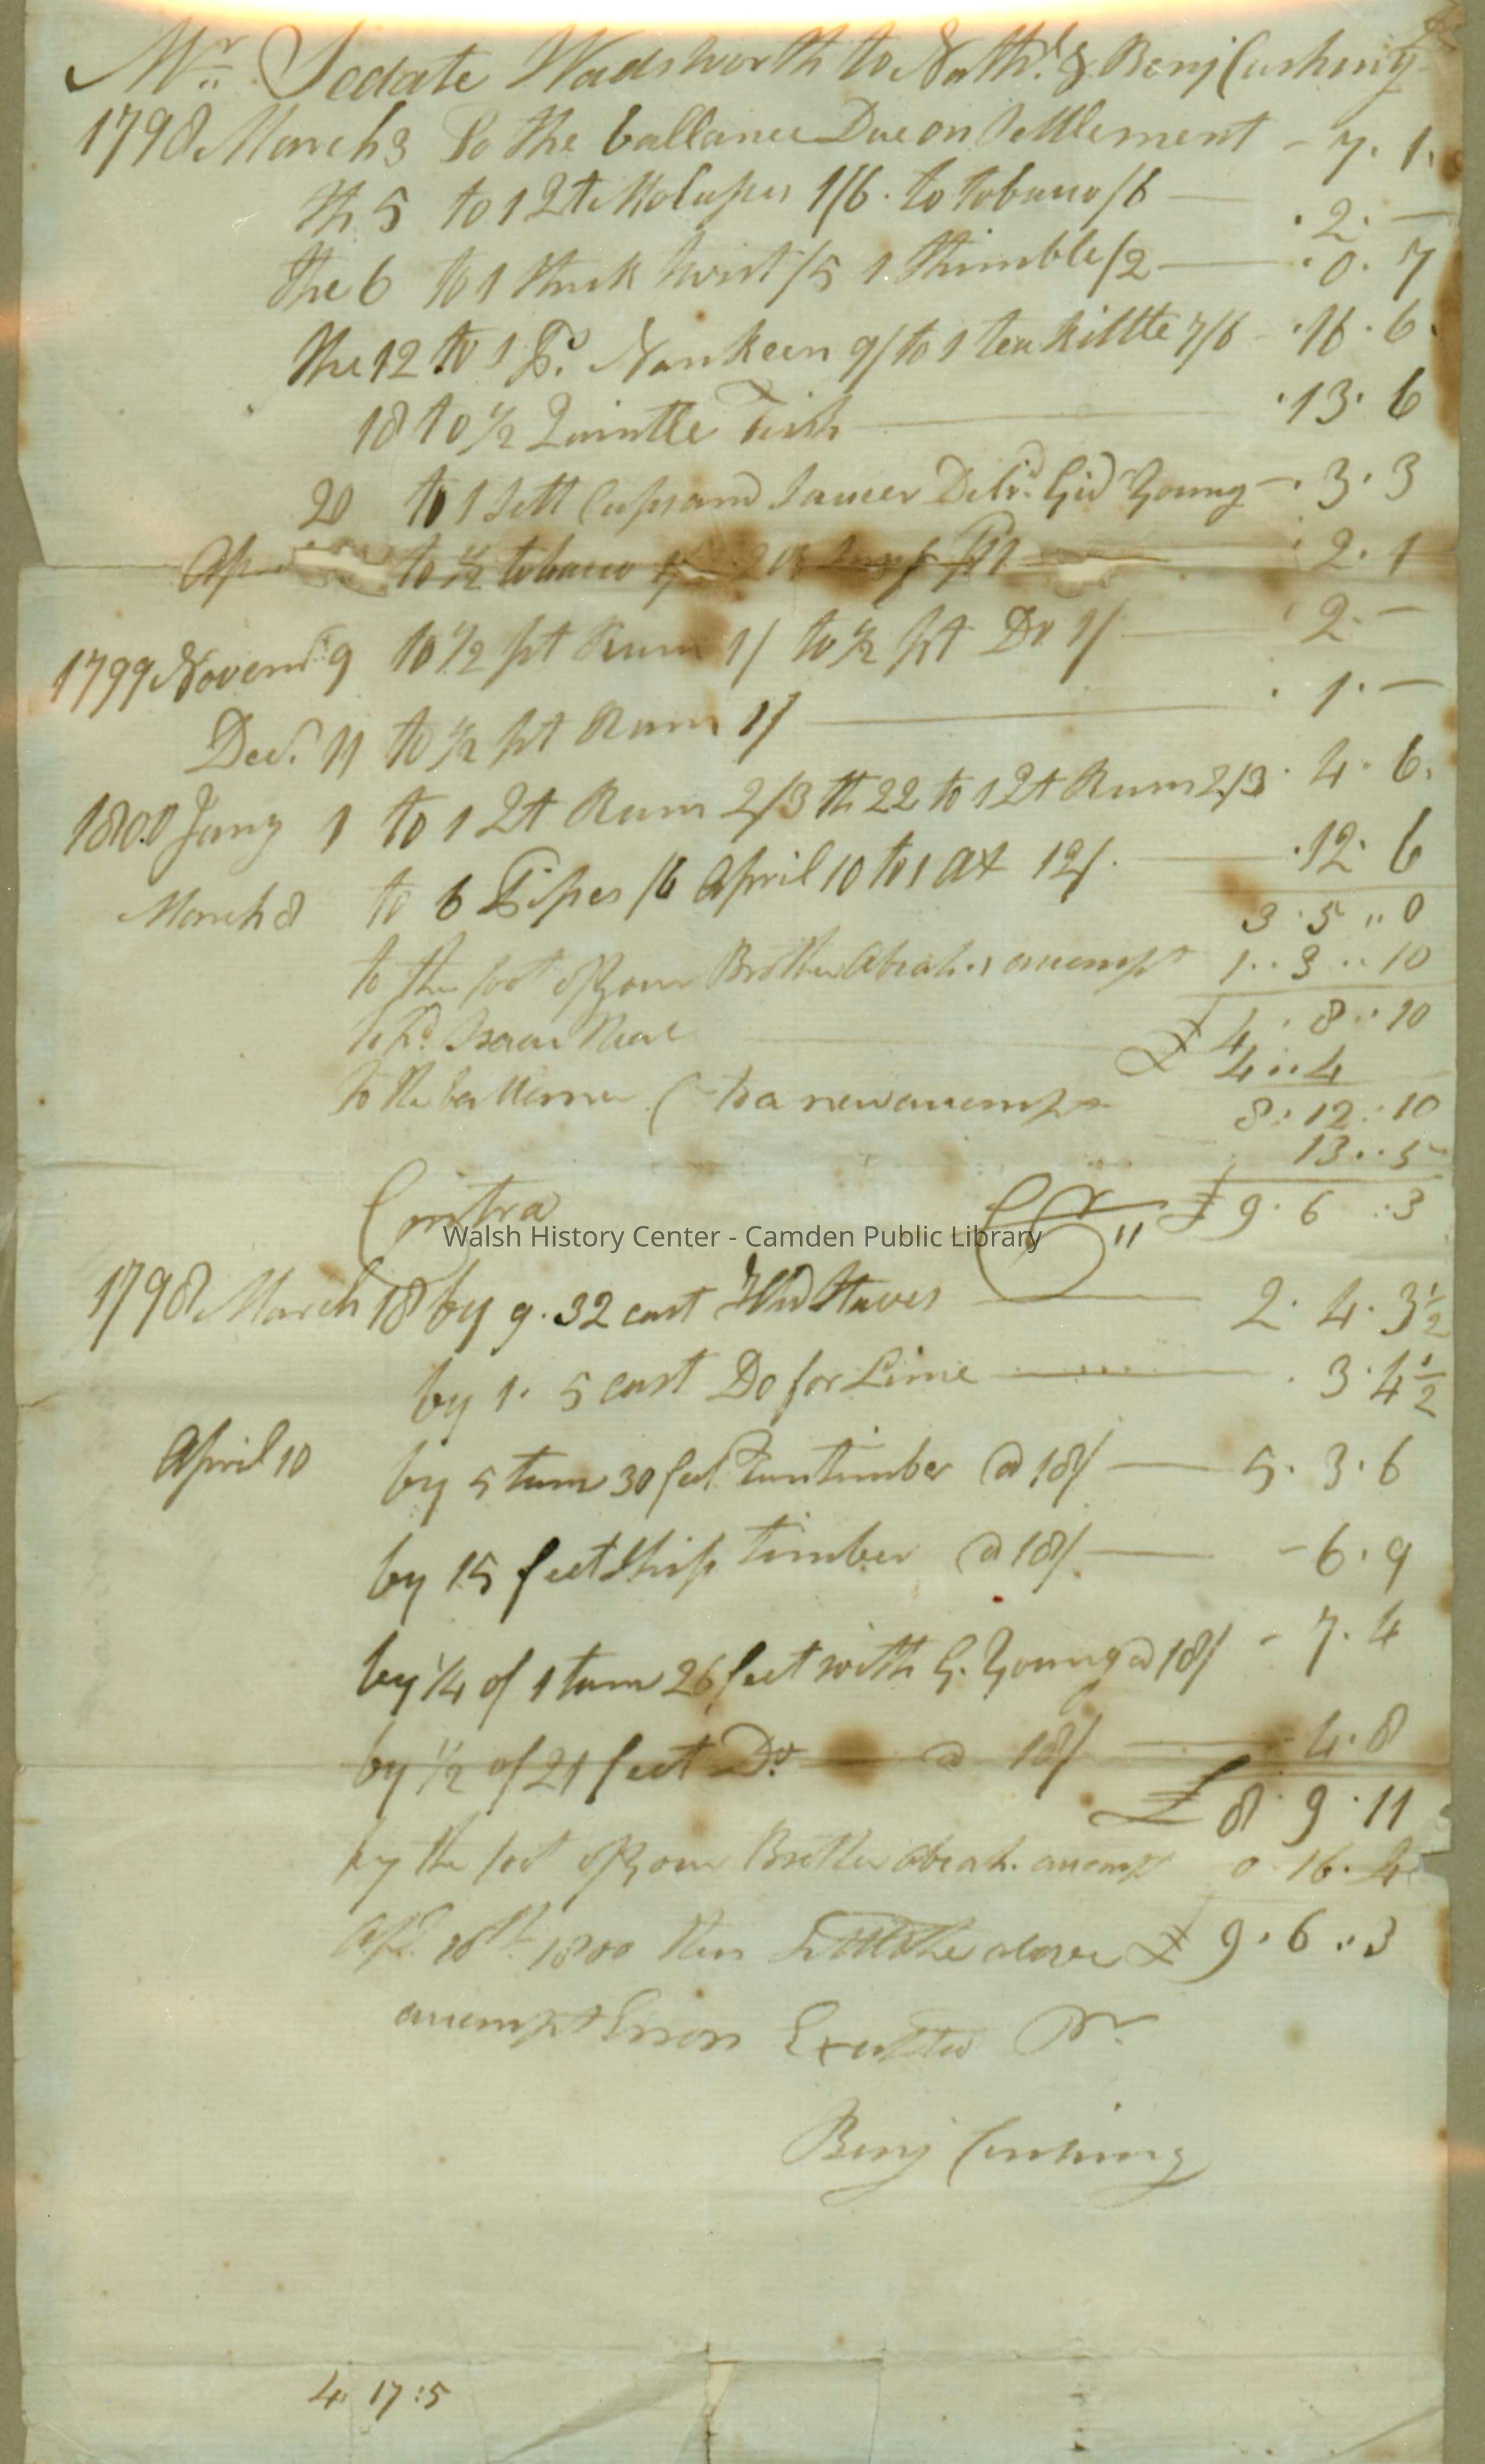 Mr. Sedate Wadsworth to Nathl. & Benj Cushing
1798 March 3 To the ballance Due on Settlement - 7. 1.
th 5 to 1 Qt Molases 1/6. to tobacco /6 — . 2. —
the 6 to 1 stick twist /5 1 thimble /2 — . 0. 7
the 12 to 1 Ps. Nankeen 9/ to 1 tea kittle 7/6 - . 16 . 6.
18 to 1/2 Quintle Fish — . 13. 6
20 to 1 Sett Cups and Saucer Delr. Gid Young - . 3. 3
Ap to 1/2 tobacco . 2. 1
1799 Novem 9 to 1/2 pt Rum 1/ to 1/2 pt Do 1/ — 2. —
Decr. 11 to 1/2 pt Rum 1/ — . 1. —
1800 Jany 1 to 1 Qt Rum 2/3 th 22 to 1 Qt Rum 2/3 . 4. 6.
March 8 to 6 Pipes /6 April 10 to 1 ax 12/. — . 12. 6
3 . 5 .. 0
to the foot of your Brother Abiah.s accompt 1 .. 3 .. 10
£ 4 . 8 .. 10
to pd. Isaac Neal — 4 .. 4
8 . 12 . 10
to the ballance to a new accompt 13 .. 5
Contra Cr £ 9 . 6 .. 3
Walsh History Center - Camden Public Library
1798 March 18 by 9. 32 cast Hhd Staves — 2. 4. 3 1/2
by 1. 5 cast Do for Lime — . 3. 4 1/2
April 10 by 5 tuns 30 feet Tun timber @ 18/ — 5. 3. 6
by 15 feet Ship timber @ 18/. — - 6. 9
by 1/4 of 1 tun 26 feet with G. Young @ 18/ - 7. 4
by 1/2 of 21 feet Do — @ 18/ — 4. 8
£ 8. 9. 11
by the foot of your Brother Abiah. accompt 0 16. 4
Apl. 10th. 1800 then Settled the above £ 9. 6 .. 3
accompt Errors Excepted Pr
Benj Cushing
4 17:5